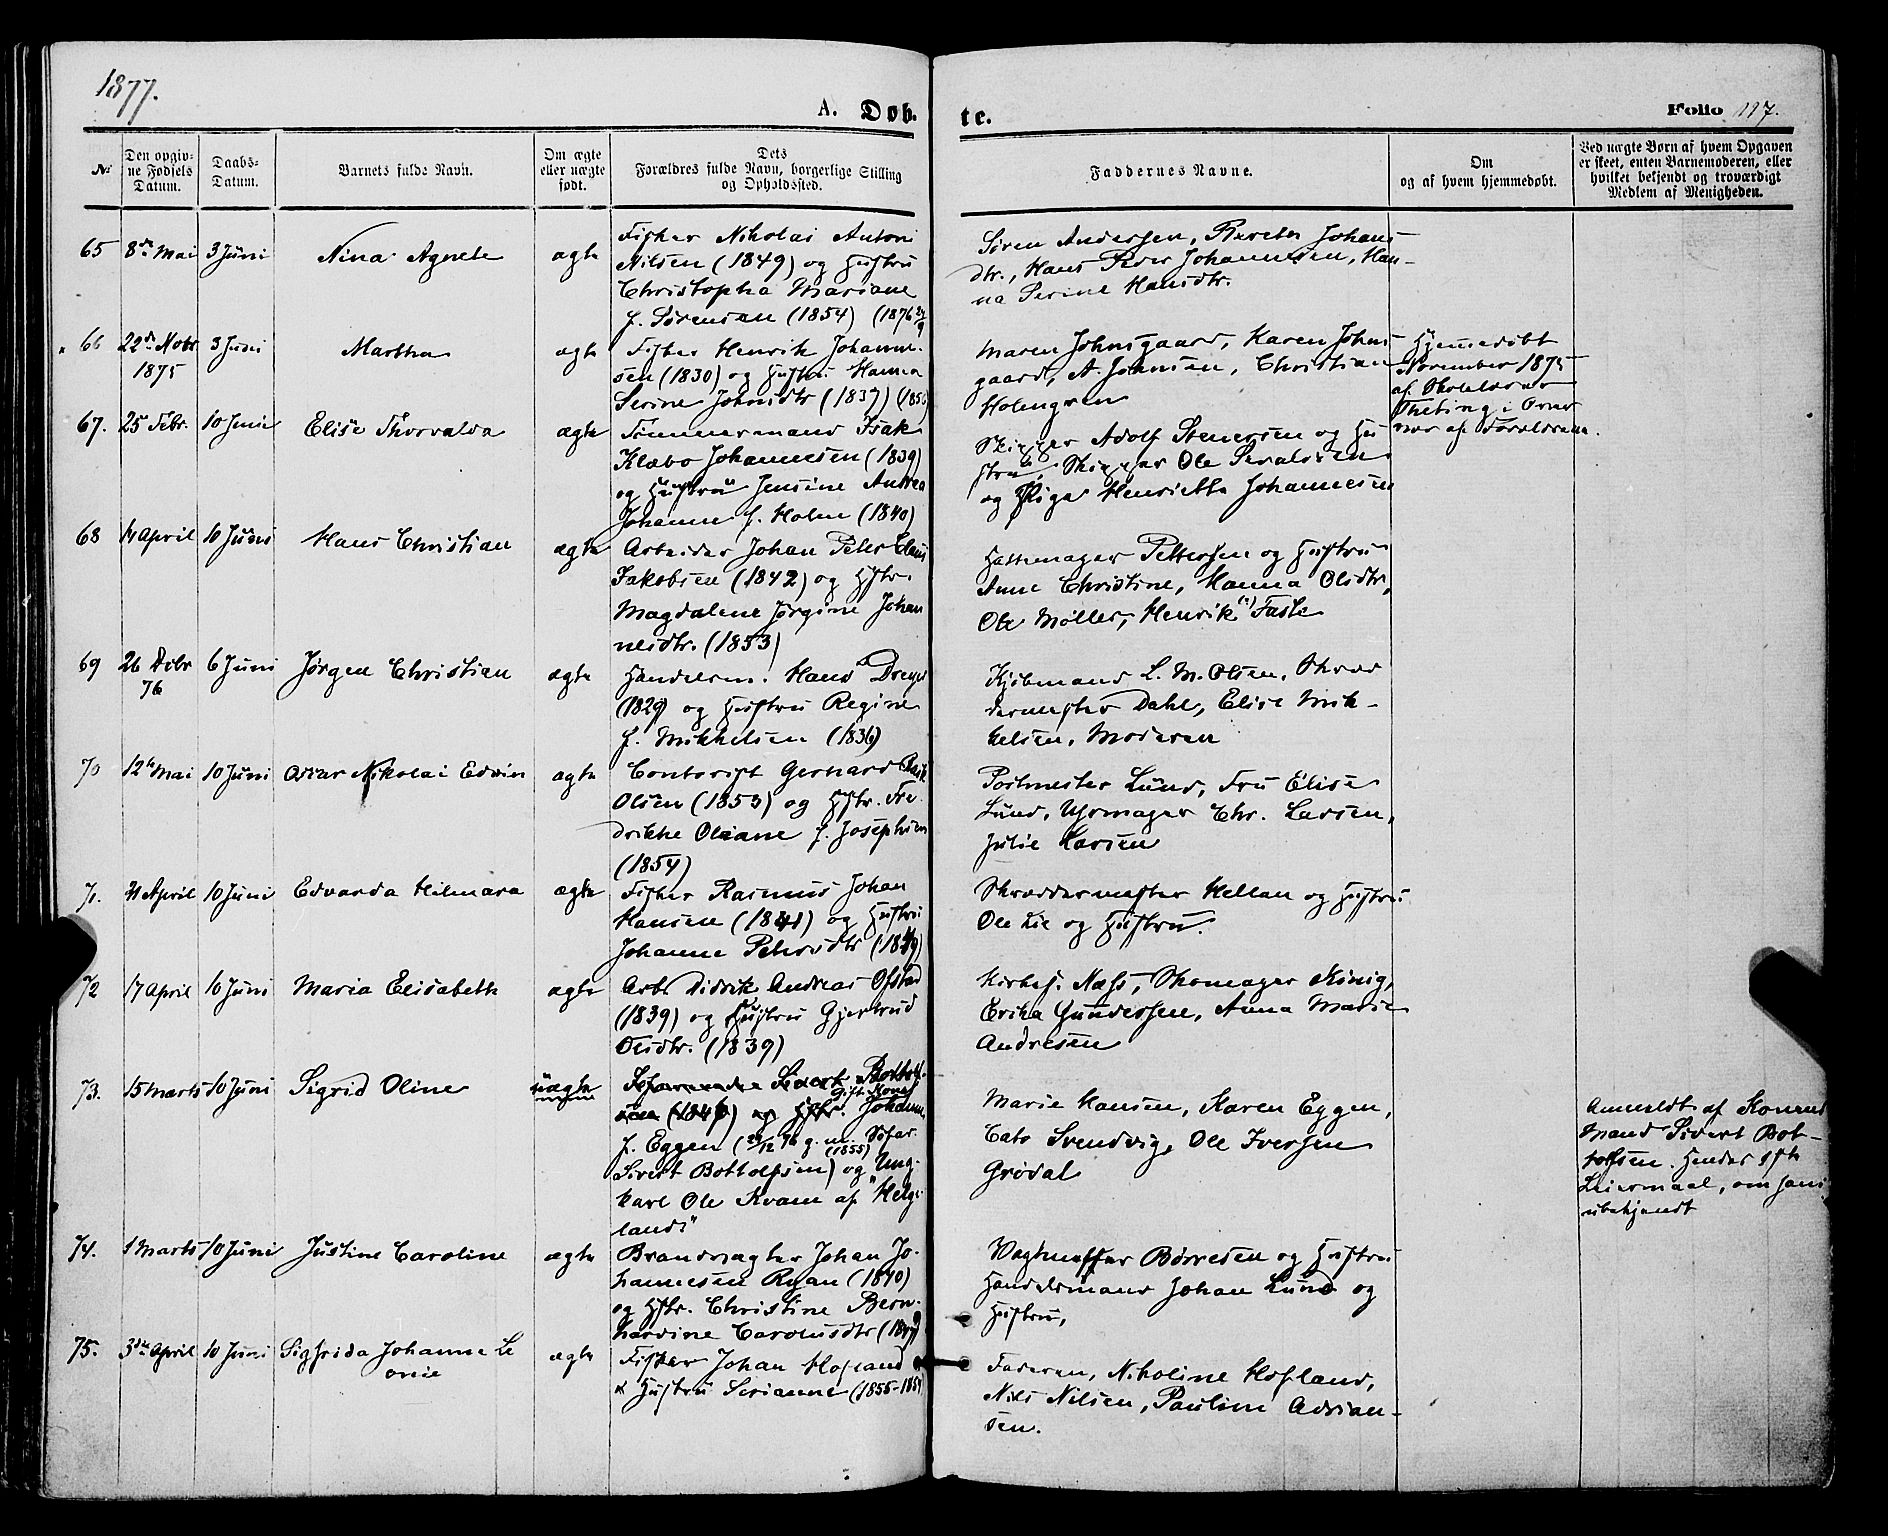 1877.
A. Døb-
te.
Folio 117.
No
Den opgiv-
ne Fødsels
Datum.
Daabs-
Datum.
Barnets fulde Navn.
Om ægte
eller uægte
født.
Dets
Forældres fulde Navn, borgerlige Stilling
og Opholdssted.
Faddernes Navne.
Om
og af hvem hjemmedøbt.
Ved uægte Børn af hvem Opgaven
er skeet, enten Barnemoderen, eller
hvilket bekjendt og troværdigt
Medlem af Menigheden.
65 8de Mai 3 Juni Nina Agnete ægte
Fisker Nikolai Antoni
Nilsen (1849) og Hustru
Christopha Mariane
f. Sørensen (1854) (1876
Søren Andersen, Johans-
dtr., Hans Peder Johannesen, Han-
na Serine Hansdtr.
66 22de Novbr 1875 3 Juni Martha ægte
Fisker Henrik Johanne-
sen (1830) og Hustru Hanna
Serine Johnsdtr (1837)
Maren Johnsgaard, Karen Johns-
gaard, A. Johnsen, Christian
Holmgren
Hjemmedøbt
November 1875
af Skolelærer
Theting i
af Forældrene.
67. 25 Febr. 10 Juni Elise Thorvalda ægte
Tømmermand Isak
Klæbo Johannesen (1839)
og Hustru Jensine Andrea
Johanne f. Holm (1840)
Skipper Adolf Stenersen og Hu-
stru, Skipper Ole
og Pige Henriette Johannesen
68 14 April 10 Juni Hans Christian ægte
Arbeider Johan Peter Claus
Jakobsen (1842) og Hstr.
Magdalene Jørgine Johan
nesdtr. (1853)
Hattemager Pettersen og Hustru
Anne Christine, Hanna Olsdtr,
Ole Møller, Henrik Faste
69 26 Debr 76 6 Juni Jørgen Christian ægte
Handelsm. Hans Dreyer
(1829) og Hustru Regine
f. Mikkelsen (1836)
Kjøbmand L. M. Olsen, Skræd
dermester Dahl, Elise Mik-
kelsen, Moderen
70 12te Mai 10 Juni Oscar Nikolai Edvin ægte
Contorist Gerhard
Olsen (1853) og Hstr. Fre-
drikke Oliane f. Josephsen
(1854)
Postmester Lund, Fru Elise
Lund, Uhrmager Chr. Larsen,
Julie Larsen
71. 21 April 10 Juni Edvarda Hilmara ægte
Fisker Rasmus Johan
Hansen (1841) og Hustru
Johanne Petersdtr (1849)
Skræddermester Hellan og Hustru
Ole Lie og Hustru.
72 17 April 10 Juni Maria Elisabeth ægte
Arb. Didrik Andreas Ofstad
(1839) og Hustru Gjertrud
Olsdtr. (1839)
Kirkes. Næss, Skomager König,
Erika Gundersen, Anna Marie
Andresen
73. 15 Marts 10 Juni Sigrid Oline uægte
Sivert Bottolf-
sen (1846) og Hstr. Gift Kone Johanne
f. Eggen (29/12 76 g. m. Søfar.
Sivert Bottolfsen) (1855) og Ung-
karl Ole Kvam af "Helge-
lands"
Marie Hansen, Karen Eggen,
Cato Svendvig, Ole Iversen
Grødal
Anmeldt af Konens
Mand Sivert Bot-
tolfsen. Hendes 1ste
Leiermaal, om hans
ubekjendt
74. 1 Marts 10 Juni Justine Caroline ægte
Brandvagter Johan Jo-
hannesen Ryan (1840)
og Hstr. Christine Bern-
hardine Carolusdtr
Vagtmester Børresen og Hustru
Handelsmand Johan Lund og
Hustru,
75. 3die April 10 Juni Sigfrida Johanne Le
onie ægte
Fisker Johan Hofland
& Hustru Serianne (1855-1854)
Faderen, Nikoline Hofland,
Nils Nilsen, Pauline Adrian-
sen.